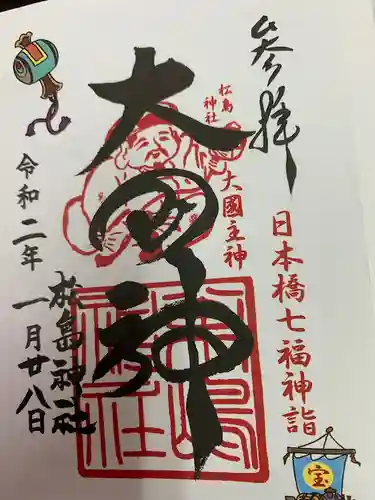 参拝
日本橋七福神詣
松島
神社
大國主神
大国神
松島神社
令和二年一月廿八日
松島神社
宝